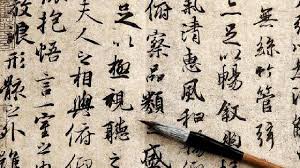 無絲竹管弦
足以暢敘幽
氣清惠風和
俯察品類盛
足以極視聽之
夫人之相與俯仰
抱悟言一室之內
放浪形骸之外雖